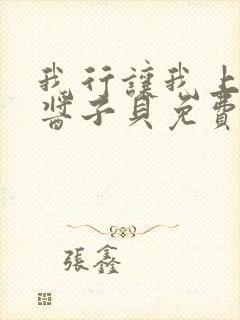 我行讓我上
醬子貝免費
張鑫